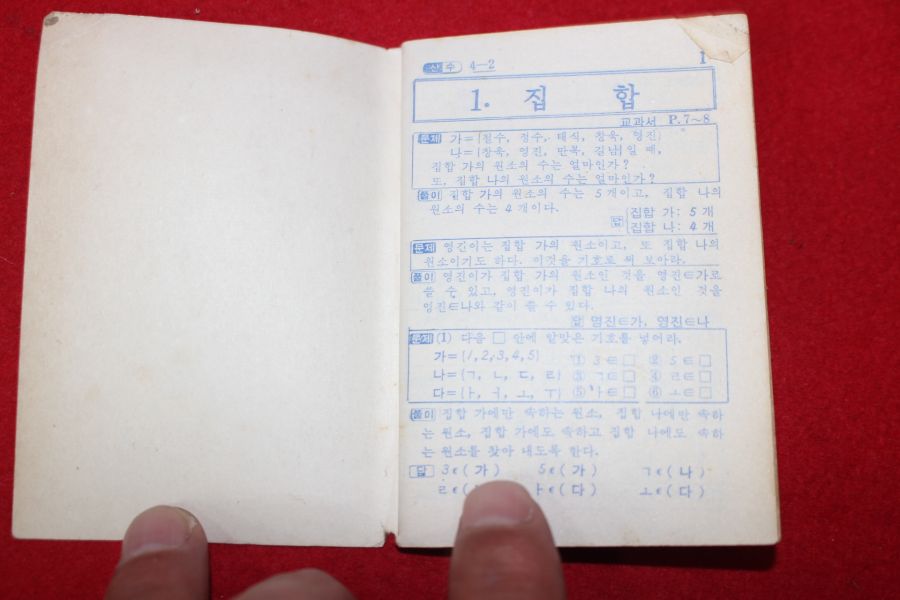 산수 4-2
1
1. 집 합
교과서 P.7~8
문제 가={철수, 정수, 태식, 창욱, 영진}
나={창욱, 영진, 만복, 길남}일 때,
집합 가의 원소의 수는 얼마인가?
또, 집합 나의 원소의 수는 얼마인가?
풀이 집합 가의 원소의 수는 5개이고, 집합 나의
원소의 수는 4개이다.
답 집합 가: 5개
집합 나: 4개
문제 영진이는 집합 가의 원소이고, 또 집합 나의
원소이기도 하다. 이것을 기호로 써 보아라.
풀이 영진이가 집합 가의 원소인 것을 영진∈가로
쓸 수 있고, 영진이가 집합 나의 원소인 것을
영진∈나와 같이 쓸 수 있다.
답 영진∈가, 영진∈나
문제 (1) 다음 □ 안에 알맞은 기호를 넣어라.
가={1, 2, 3, 4, 5} ① 3∈□ ② 5∈□
나={ㄱ, ㄴ, ㄷ, ㄹ} ③ ㄱ∈□ ④ ㄹ∈□
다={ㅏ, ㅓ, ㅗ, ㅜ} ⑤ ㅏ∈□ ⑥ ㅗ∈□
풀이 집합 가에만 속하는 원소, 집합 나에만 속하
는 원소, 집합 가에도 속하고 집합 나에도 속하
는 원소를 찾아 내도록 한다.
답 3∈(가) 5∈(가) ㄱ∈(나)
ㄹ∈( ㅏ∈(다) ㅗ∈(다)